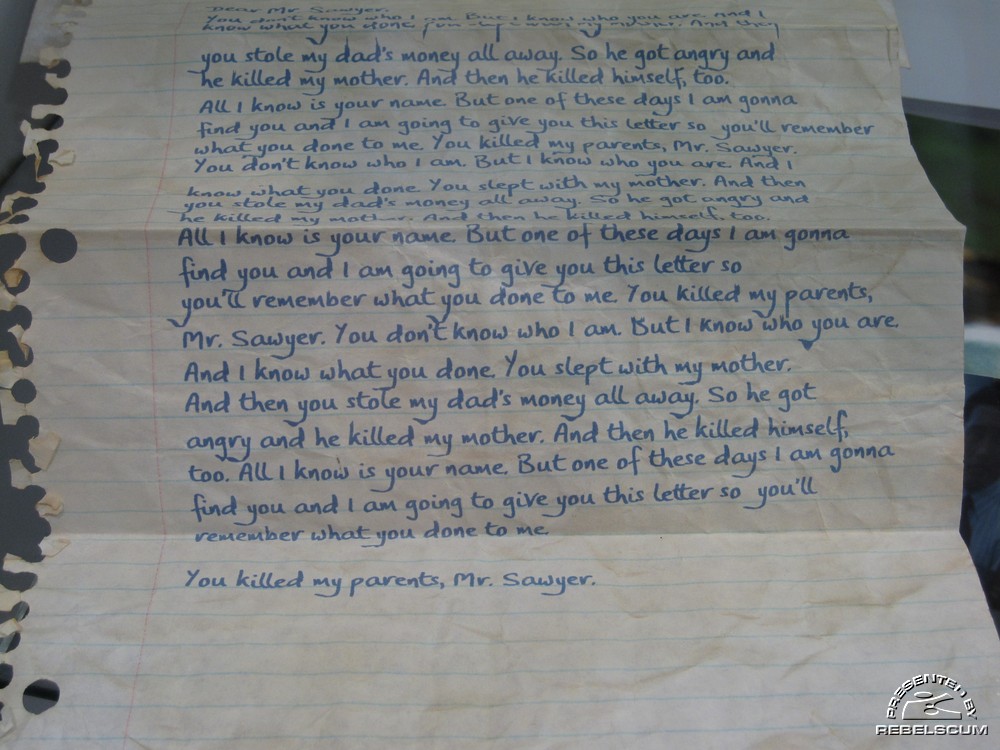 Dear Mr. Sawyer.
You don't know who I am. But I know who you are. And I
know what you done. You slept with my mother. And then
you stole my dad's money all away. So he got angry and
he killed my mother. And then he killed himself, too.
All I know is your name. But one of these days I am gonna
find you and I am going to give you this letter so you'll remember
what you done to me. You killed my parents, Mr. Sawyer.
You don't know who I am. But I know who you are. And I
know what you done. You slept with my mother. And then
you stole my dad's money all away. So he got angry and
he killed my mother. And then he killed himself, too.
All I know is your name. But one of these days I am gonna
find you and I am going to give you this letter so
you'll remember what you done to me. You killed my parents,
Mr. Sawyer. You don't know who I am. But I know who you are.
And I know what you done. You slept with my mother.
And then you stole my dad's money all away. So he got
angry and he killed my mother. And then he killed himself,
too. All I know is your name. But one of these days I am gonna
find you and I am going to give you this letter so you'll
remember what you done to me.
You killed my parents, Mr. Sawyer.
PRESENTED BY
REBELSCUM